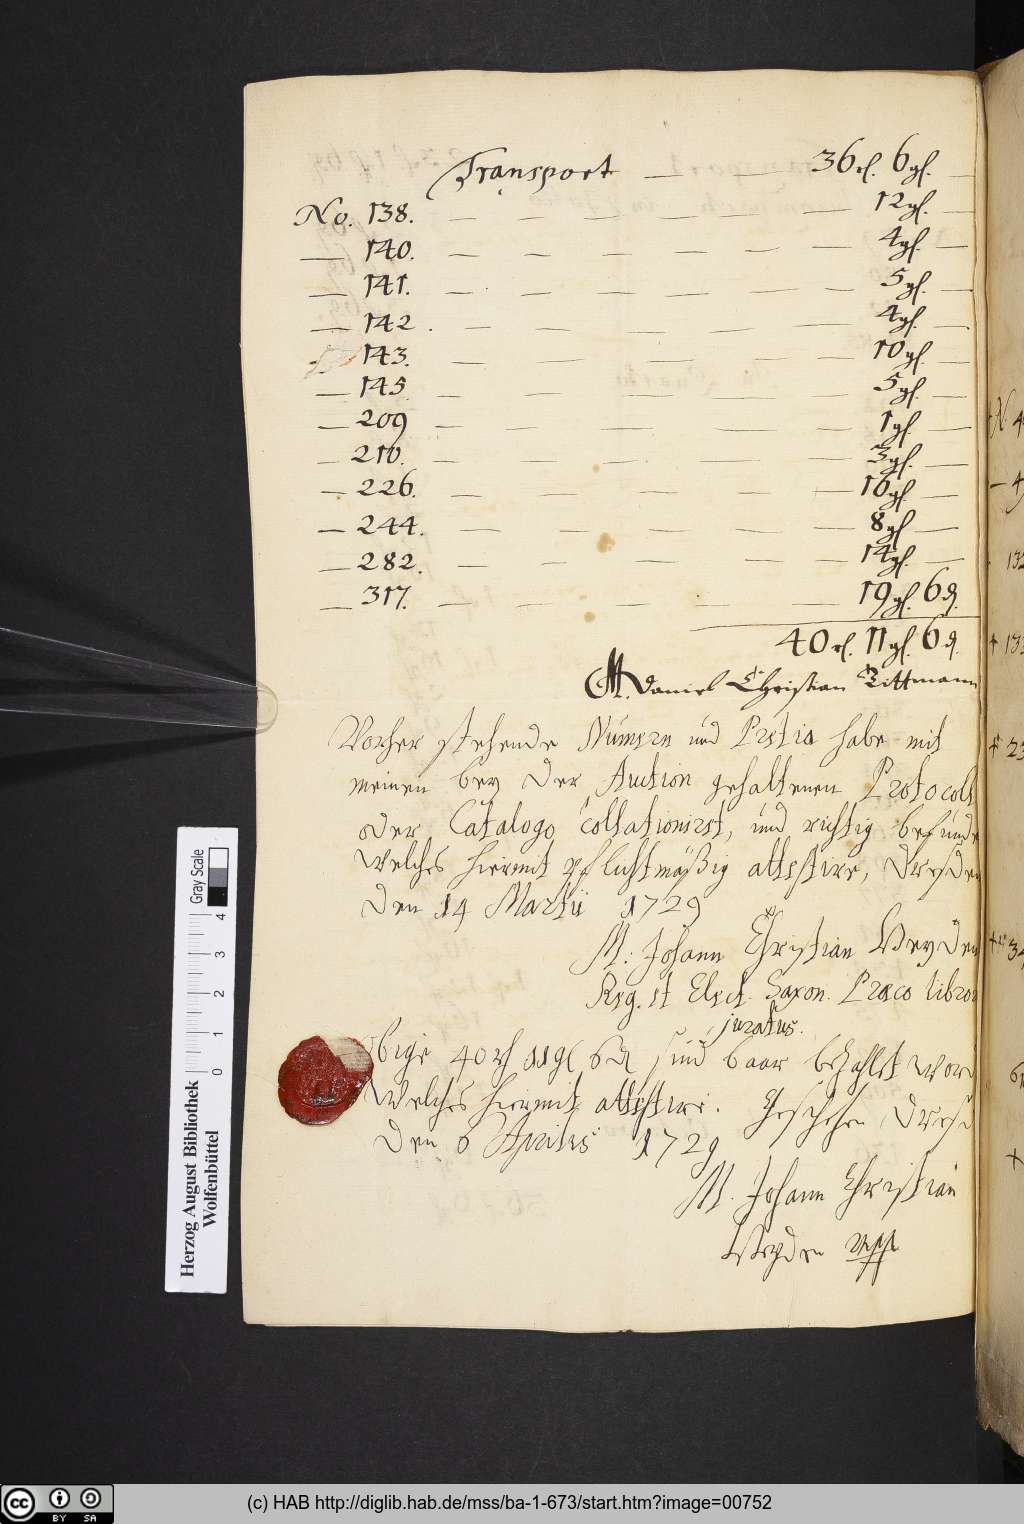 Transport — — 36 rl. 6 gl. —
No. 138. — — — — — — 12 gl. —
— 140. — — — — — — 4 gl. —
— 141. — — — — — — 5 gl. —
— 142. — — — — — — 4 gl. —
143. — — — — — — 10 gl. —
— 145 — — — — — — 5 gl. —
— 209 — — — — — — 1 gl. —
— 210. — — — — — — 3 gl. —
— 226. — — — — — — 16 gl. —
— 244. — — — — — — 8 gl. —
— 282. — — — — — — 14 gl. —
— 317. — — — — — — 19 gl. 6 d.
40 rl. 11 gl. 6 d.
M. Daniel Christian Tittmann
Vorher stehende Numern und Pretia habe mit
meinen bey der Auction gehaltenen Protocoll
oder Catalogo collationiret, und richtig befunde
welches hiermit pflichtmäßig attestire, Dresden
den 14 Martii 1729
M. Johann Christian Weyden
Reg. et Elect. Saxon. Præco libror
juratus.
obige 40 rl 11 gl 6 d sind baar bezahlet word
welches hiermit attestire. Geschehen Dresd
den 6 Aprilis 1729
M. Johann Christian
Weyden mpp
N. 4
132
133
23
34
Herzog August Bibliothek
Wolfenbüttel
Gray Scale
0 1 2 3 4
cc BY SA
(c) HAB http://diglib.hab.de/mss/ba-1-673/start.htm?image=00752